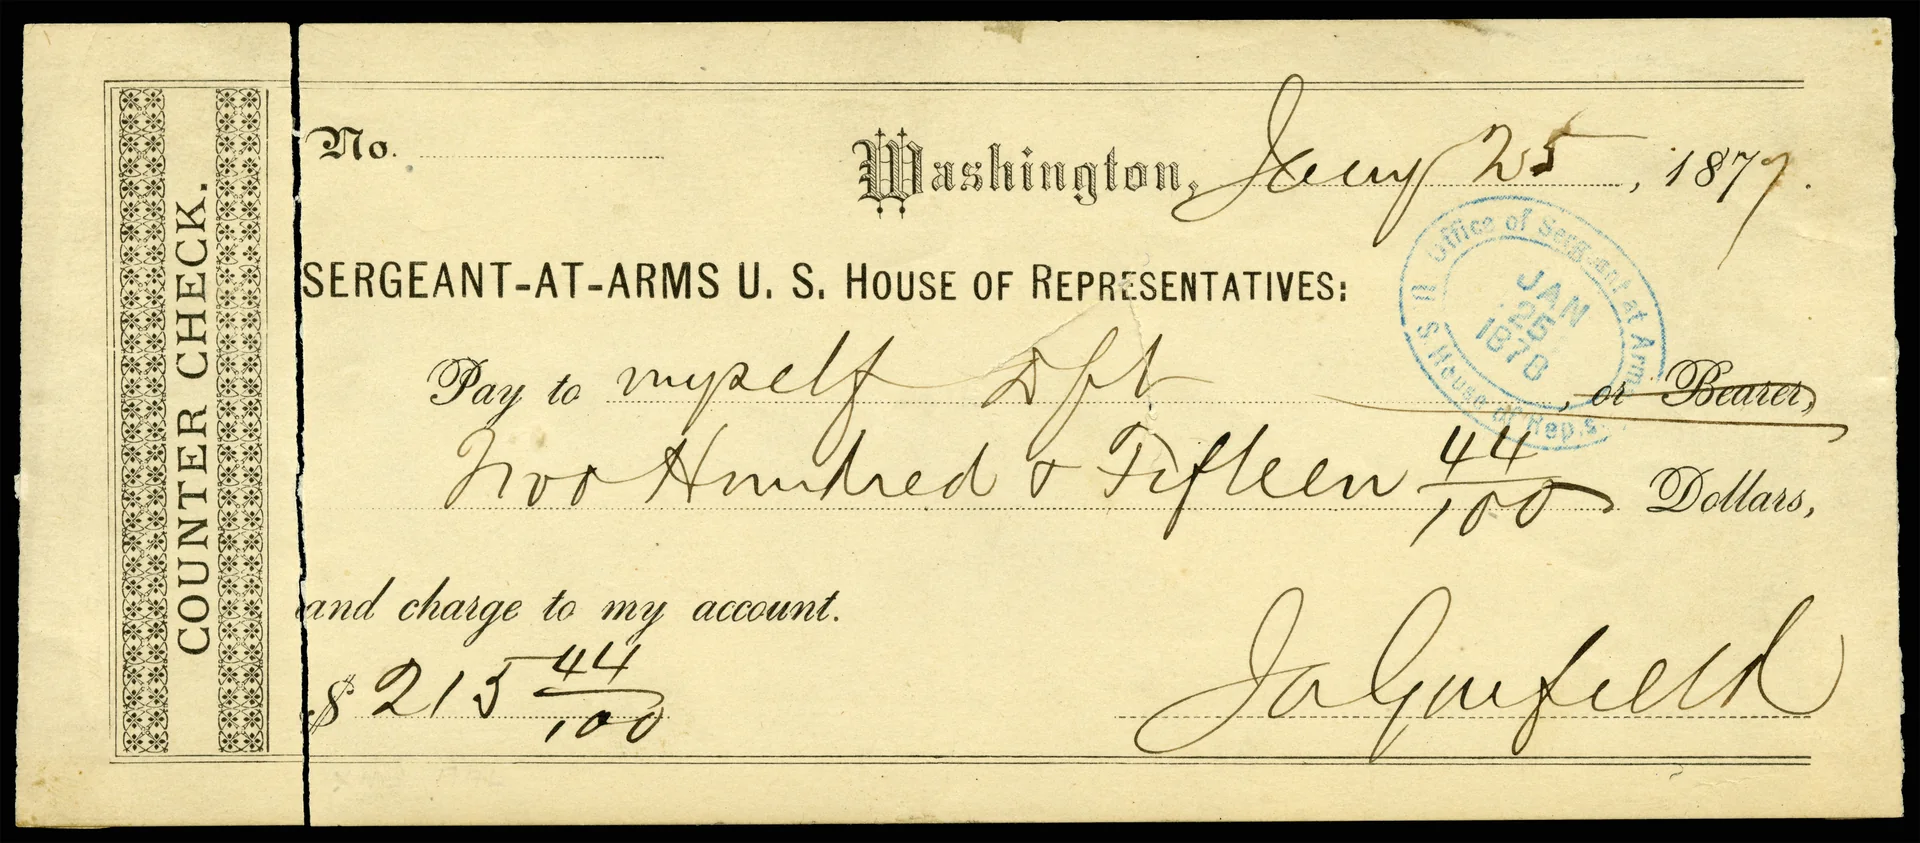 COUNTER CHECK.
No.
Washington, Jany 25, 1877.
SERGEANT-AT-ARMS U. S. HOUSE OF REPRESENTATIVES:
Office of Sergeant at Arms
U. S. House of Reps.
JAN
25
1878
Pay to myself Dft, or Bearer,
Two Hundred & Fifteen 44/100 Dollars,
and charge to my account.
$ 215 44/100
Ja Garfield